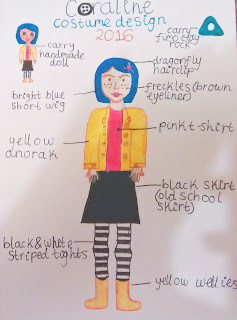 Coraline
costume design
2016
carry
handmade
doll
carry
fimo clay
rock
dragonfly
hairclip
freckles (brown
eyeliner)
bright blue
short wig
pink t-shirt
yellow
anorak
black skirt
(old school
skirt)
black & white
striped tights
yellow wellies